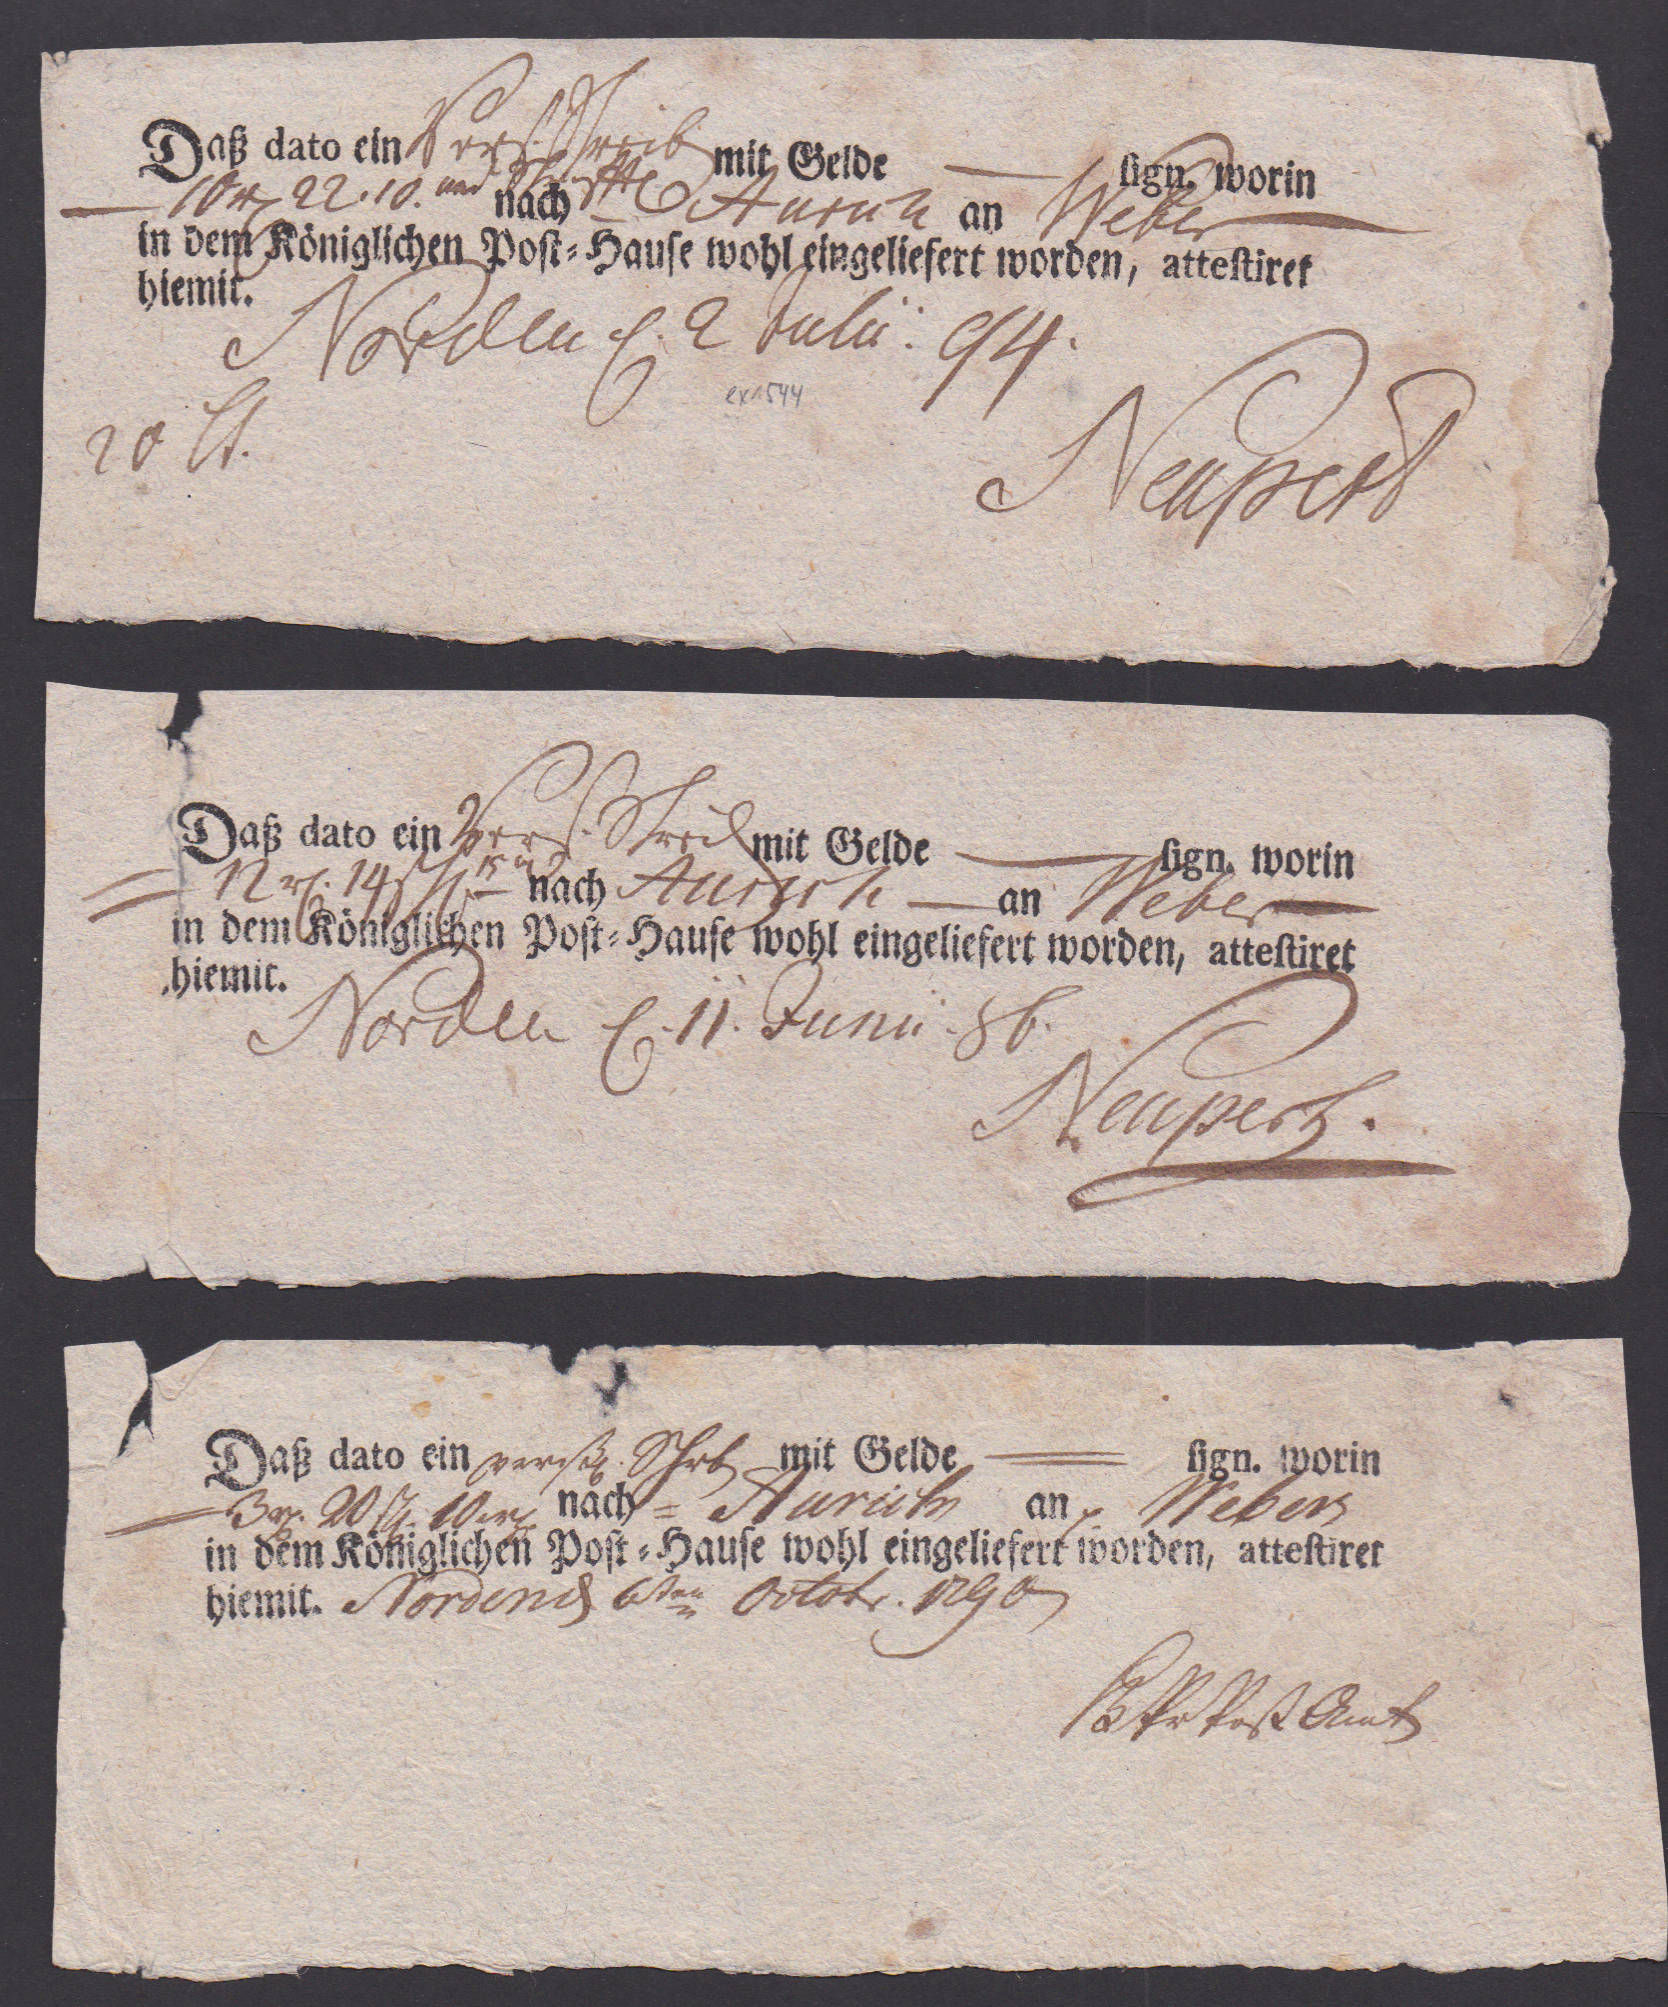 Daß dato ein Vers. Schreib mit Gelde — sign. worin
— 10 rh 22. 10. und nach Aurich an Weber —
in dem Königlichen Post-Hause wohl eingeliefert worden, attestiret
hiemit.
Norden d. 2 Julii. 94.
ex 1544
20 St.
Neupert
Daß dato ein Vers. Schreib mit Gelde — sign. worin
= 12 rh. 14 nach Aurich — an Weber —
in dem Königlichen Post-Hause wohl eingeliefert worden, attestiret
hiemit.
Norden d. 11. Junii. 86.
Neupert.
Daß dato ein Schrb mit Gelde = sign. worin
= 3 20 10 nach = Aurich an Webers
in dem Königlichen Post-Hause wohl eingeliefert worden, attestiret
hiemit. Norden d 6ten Octobr. 1790
Post Amt